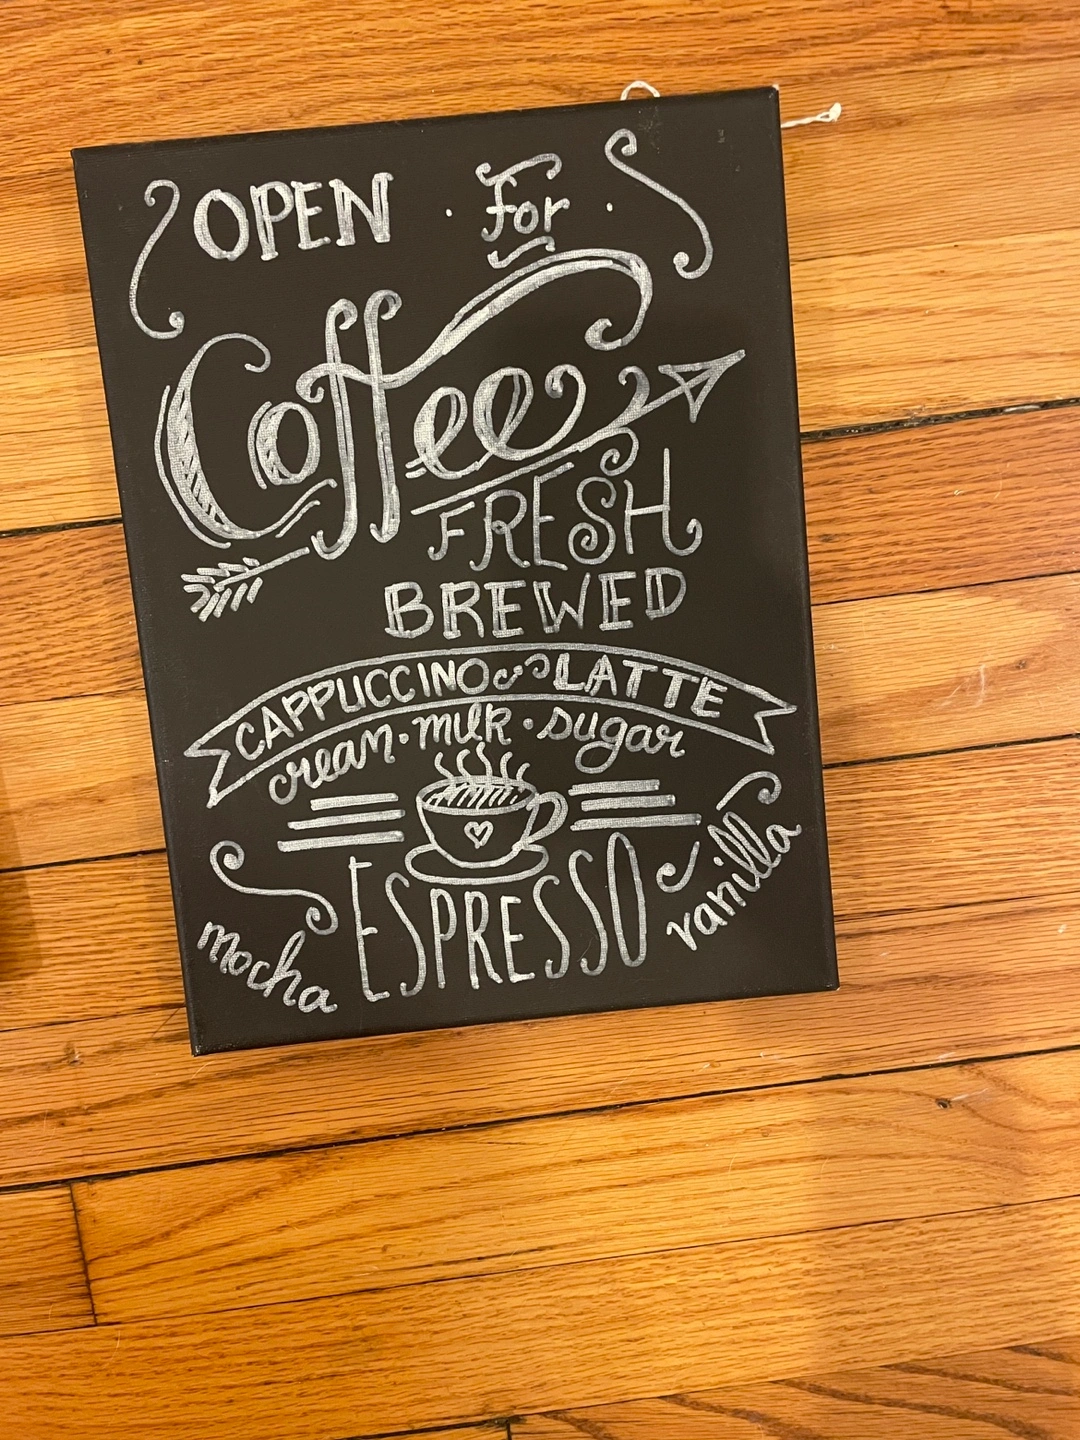 OPEN · For ·
Coffee
FRESH
BREWED
CAPPUCCINO LATTE
cream · milk · sugar
ESPRESSO
mocha
vanilla